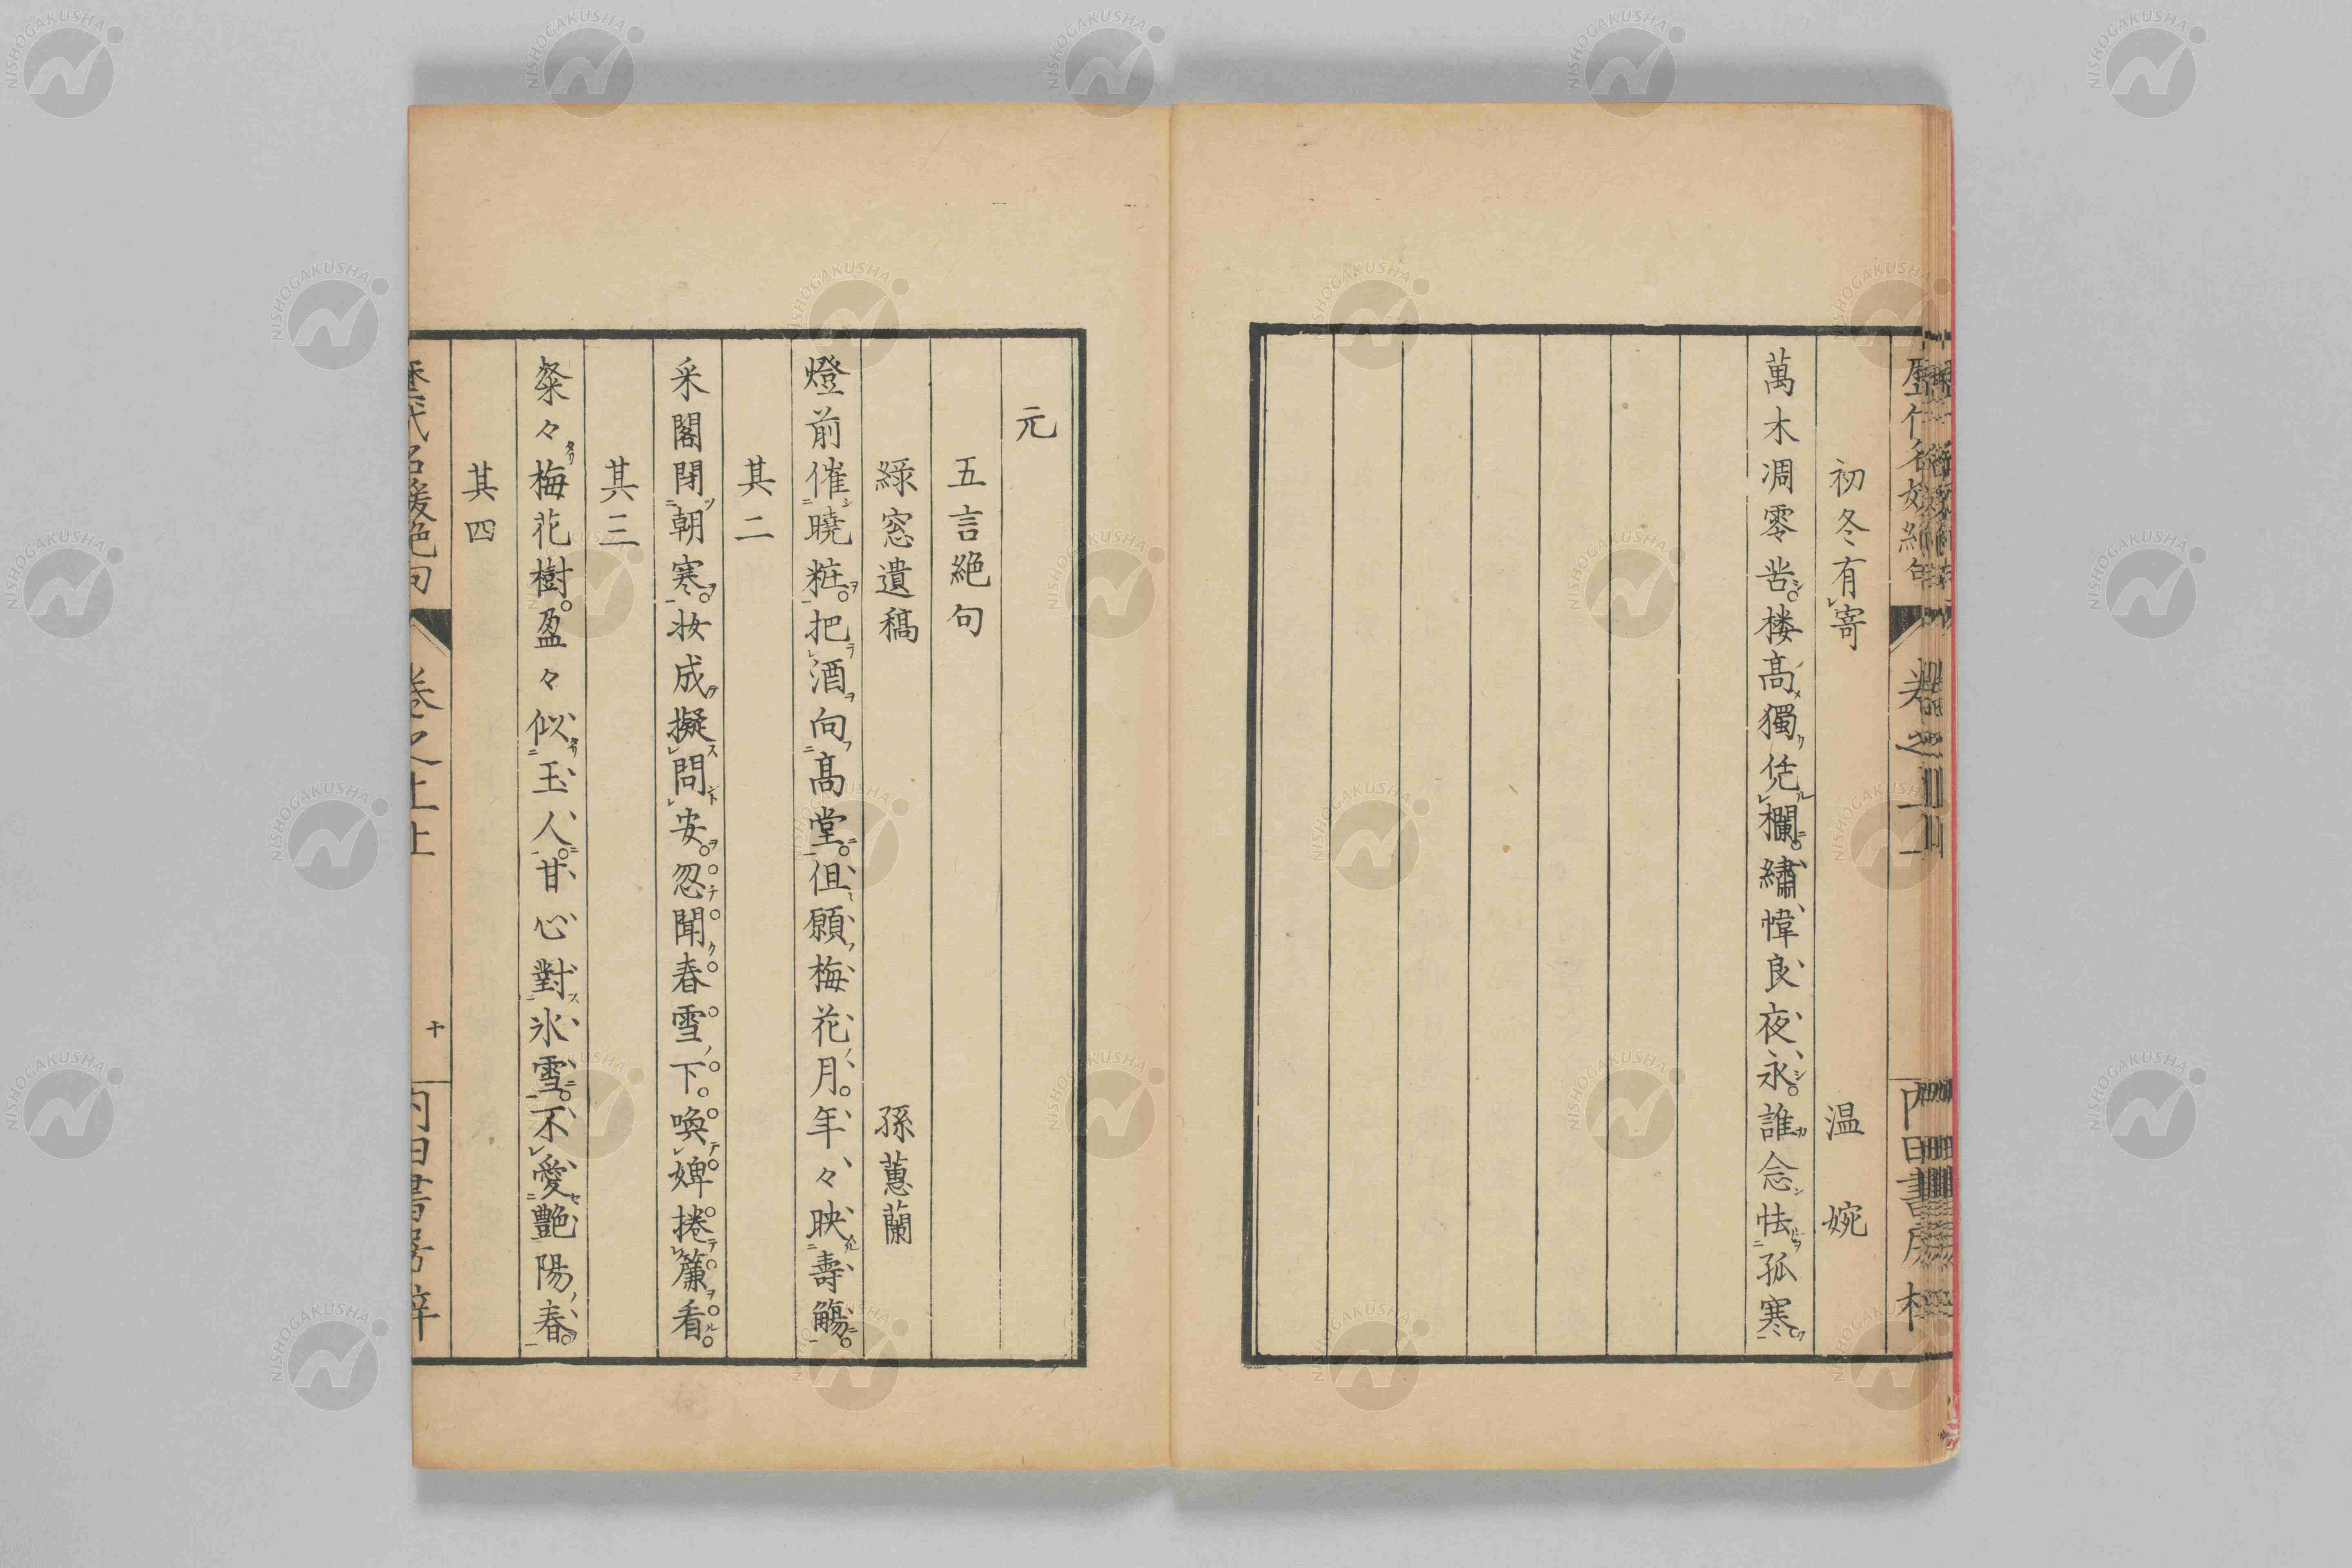 初冬有寄　温婉
萬木凋零苦楼高獨凭欄繡幃良夜永誰念怯孤寒
元
五言絶句
緑窓遺稿　孫蕙蘭
燈前催曉粧把酒向高堂但願梅花月年々映壽觴
其二
采閣閉朝寒妝成擬問安忽聞春雪下喚婢捲簾看
其三
粲々梅花樹盈々似玉人甘心對氷雪不愛艶陽春
其四
歴代名媛絶句　巻之上上　十　内田書房梓